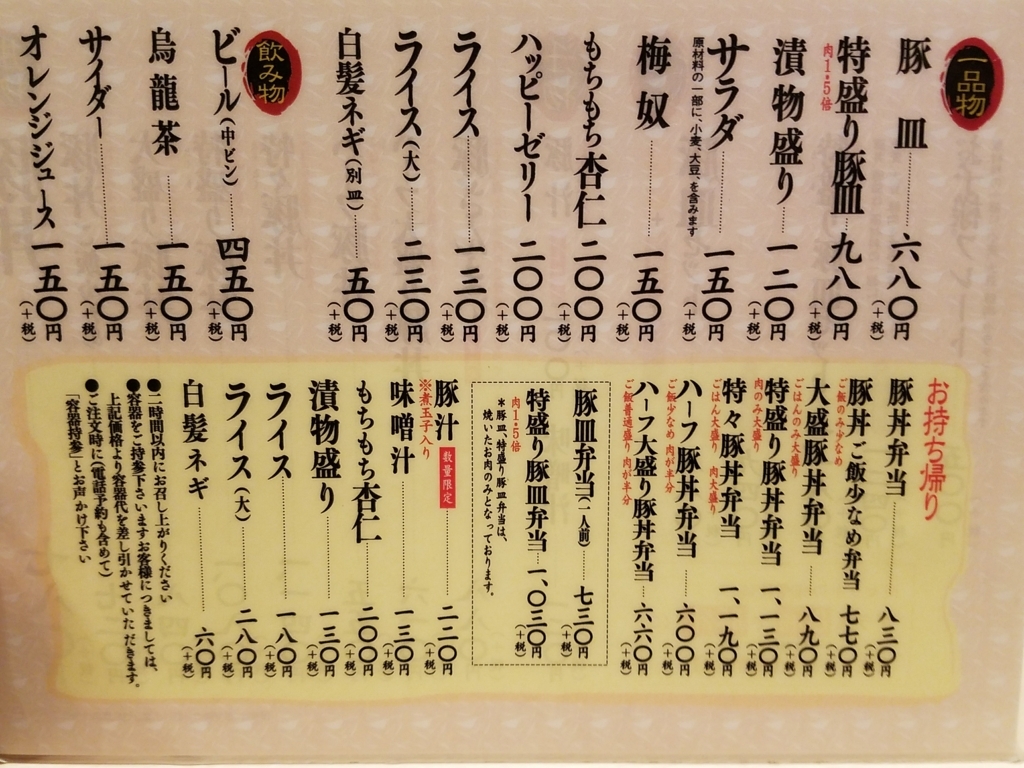 一品物
豚皿 六八〇円(+税)
特盛り豚皿 九八〇円(+税)
肉1・5倍
漬物盛り 一二〇円(+税)
サラダ 一五〇円(+税)
原材料の一部に、小麦、大豆、を含みます
梅奴 一五〇円(+税)
もちもち杏仁 二〇〇円(+税)
ハッピーゼリー 二〇〇円(+税)
ライス 一三〇円(+税)
ライス(大) 二三〇円(+税)
白髪ネギ(別皿) 五〇円(+税)
飲み物
ビール(中ビン) 四五〇円(+税)
烏龍茶 一五〇円(+税)
サイダー 一五〇円(+税)
オレンジジュース 一五〇円(+税)
お持ち帰り
豚丼弁当 八三〇円(+税)
豚丼ご飯少なめ弁当 七七〇円(+税)
ご飯のみ少なめ
大盛豚丼弁当 八九〇円(+税)
ごはんのみ大盛り
特盛り豚丼弁当 一、一三〇円(+税)
肉のみ大盛り
特々豚丼弁当 一、一九〇円(+税)
ごはん大盛り 肉大盛り
ハーフ豚丼弁当 六〇〇円(+税)
ご飯少なめ 肉が半分
ハーフ大盛り豚丼弁当 六六〇円(+税)
ご飯普通盛り 肉が半分
豚皿弁当(一人前) 七三〇円(+税)
特盛り豚皿弁当 一、〇三〇円(+税)
肉1・5倍
*豚皿、特盛り豚皿弁当は、
焼いたお肉のみとなっております。
豚汁 数量限定 二二〇円(+税)
※煮玉子入り
味噌汁 一三〇円(+税)
もちもち杏仁 二〇〇円(+税)
漬物盛り 一三〇円(+税)
ライス 一八〇円(+税)
ライス(大) 二八〇円(+税)
白髪ネギ 六〇円(+税)
●二時間以内にお召し上がりください
●容器をご持参下さいますお客様につきましては、
上記価格より容器代を差し引かせていただきます。
●ご注文時に(電話予約も含めて)
「容器持参」とお声かけ下さい